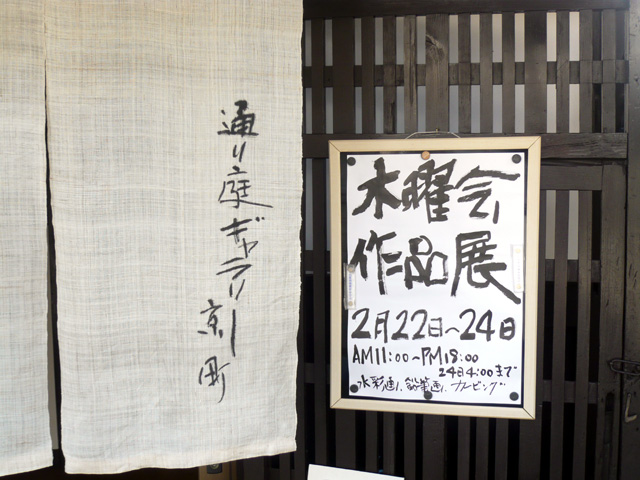 通り庭ギャラリー京町
木曜会
作品展
2月22日〜24日
AM11:00〜PM18:00
24日4:00まで
水彩画、鉛筆画、カービング